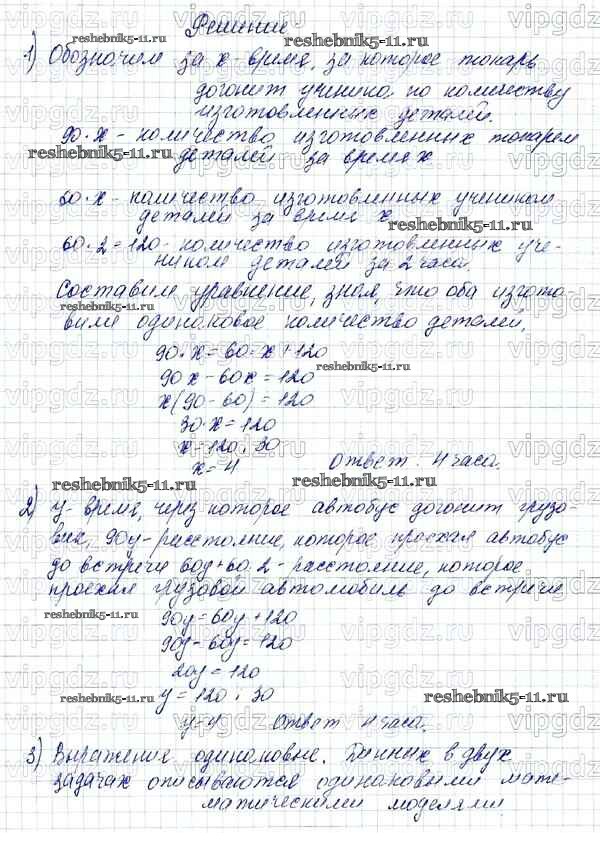 Решение
reshebnik5-11.ru
1) Обозначим за х - время, за которое токарь
догонит ученика по количеству
изготовленных деталей.
90·х - количество изготовленных токарем
reshebnik5-11.ru
деталей за время х
60·х - количество изготовленных учеником
деталей за время х
reshebnik5-11.ru
60·2=120 - количество изготовленных уче-
ником деталей за 2 часа.
Составим уравнение, зная, что оба изгото-
reshebnik5-11.ru
вили одинаковое количество деталей.
90·х=60·х+120
reshebnik5-11.ru
90х-60х=120
х(90-60)=120
30·х=120
х=120:30
reshebnik5-11.ru
х=4 Ответ: 4 часа.
reshebnik5-11.ru
2) у - время, через которое автобус догонит грузо-
вик, 90у - расстояние, которое проехал автобус
до встречи 60у+60·2 - расстояние, которое
проехал грузовой автомобиль до встречи
reshebnik5-11.ru
90у=60у+120
90у-60у=120
20у=120
reshebnik5-11.ru
у=120:30
reshebnik5-11.ru
у=4 Ответ 4 часа.
3) Выражения одинаковые. Данных в двух
задачах описываются одинаковыми мате-
reshebnik5-11.ru
матическими моделями
reshebnik5-11.ru